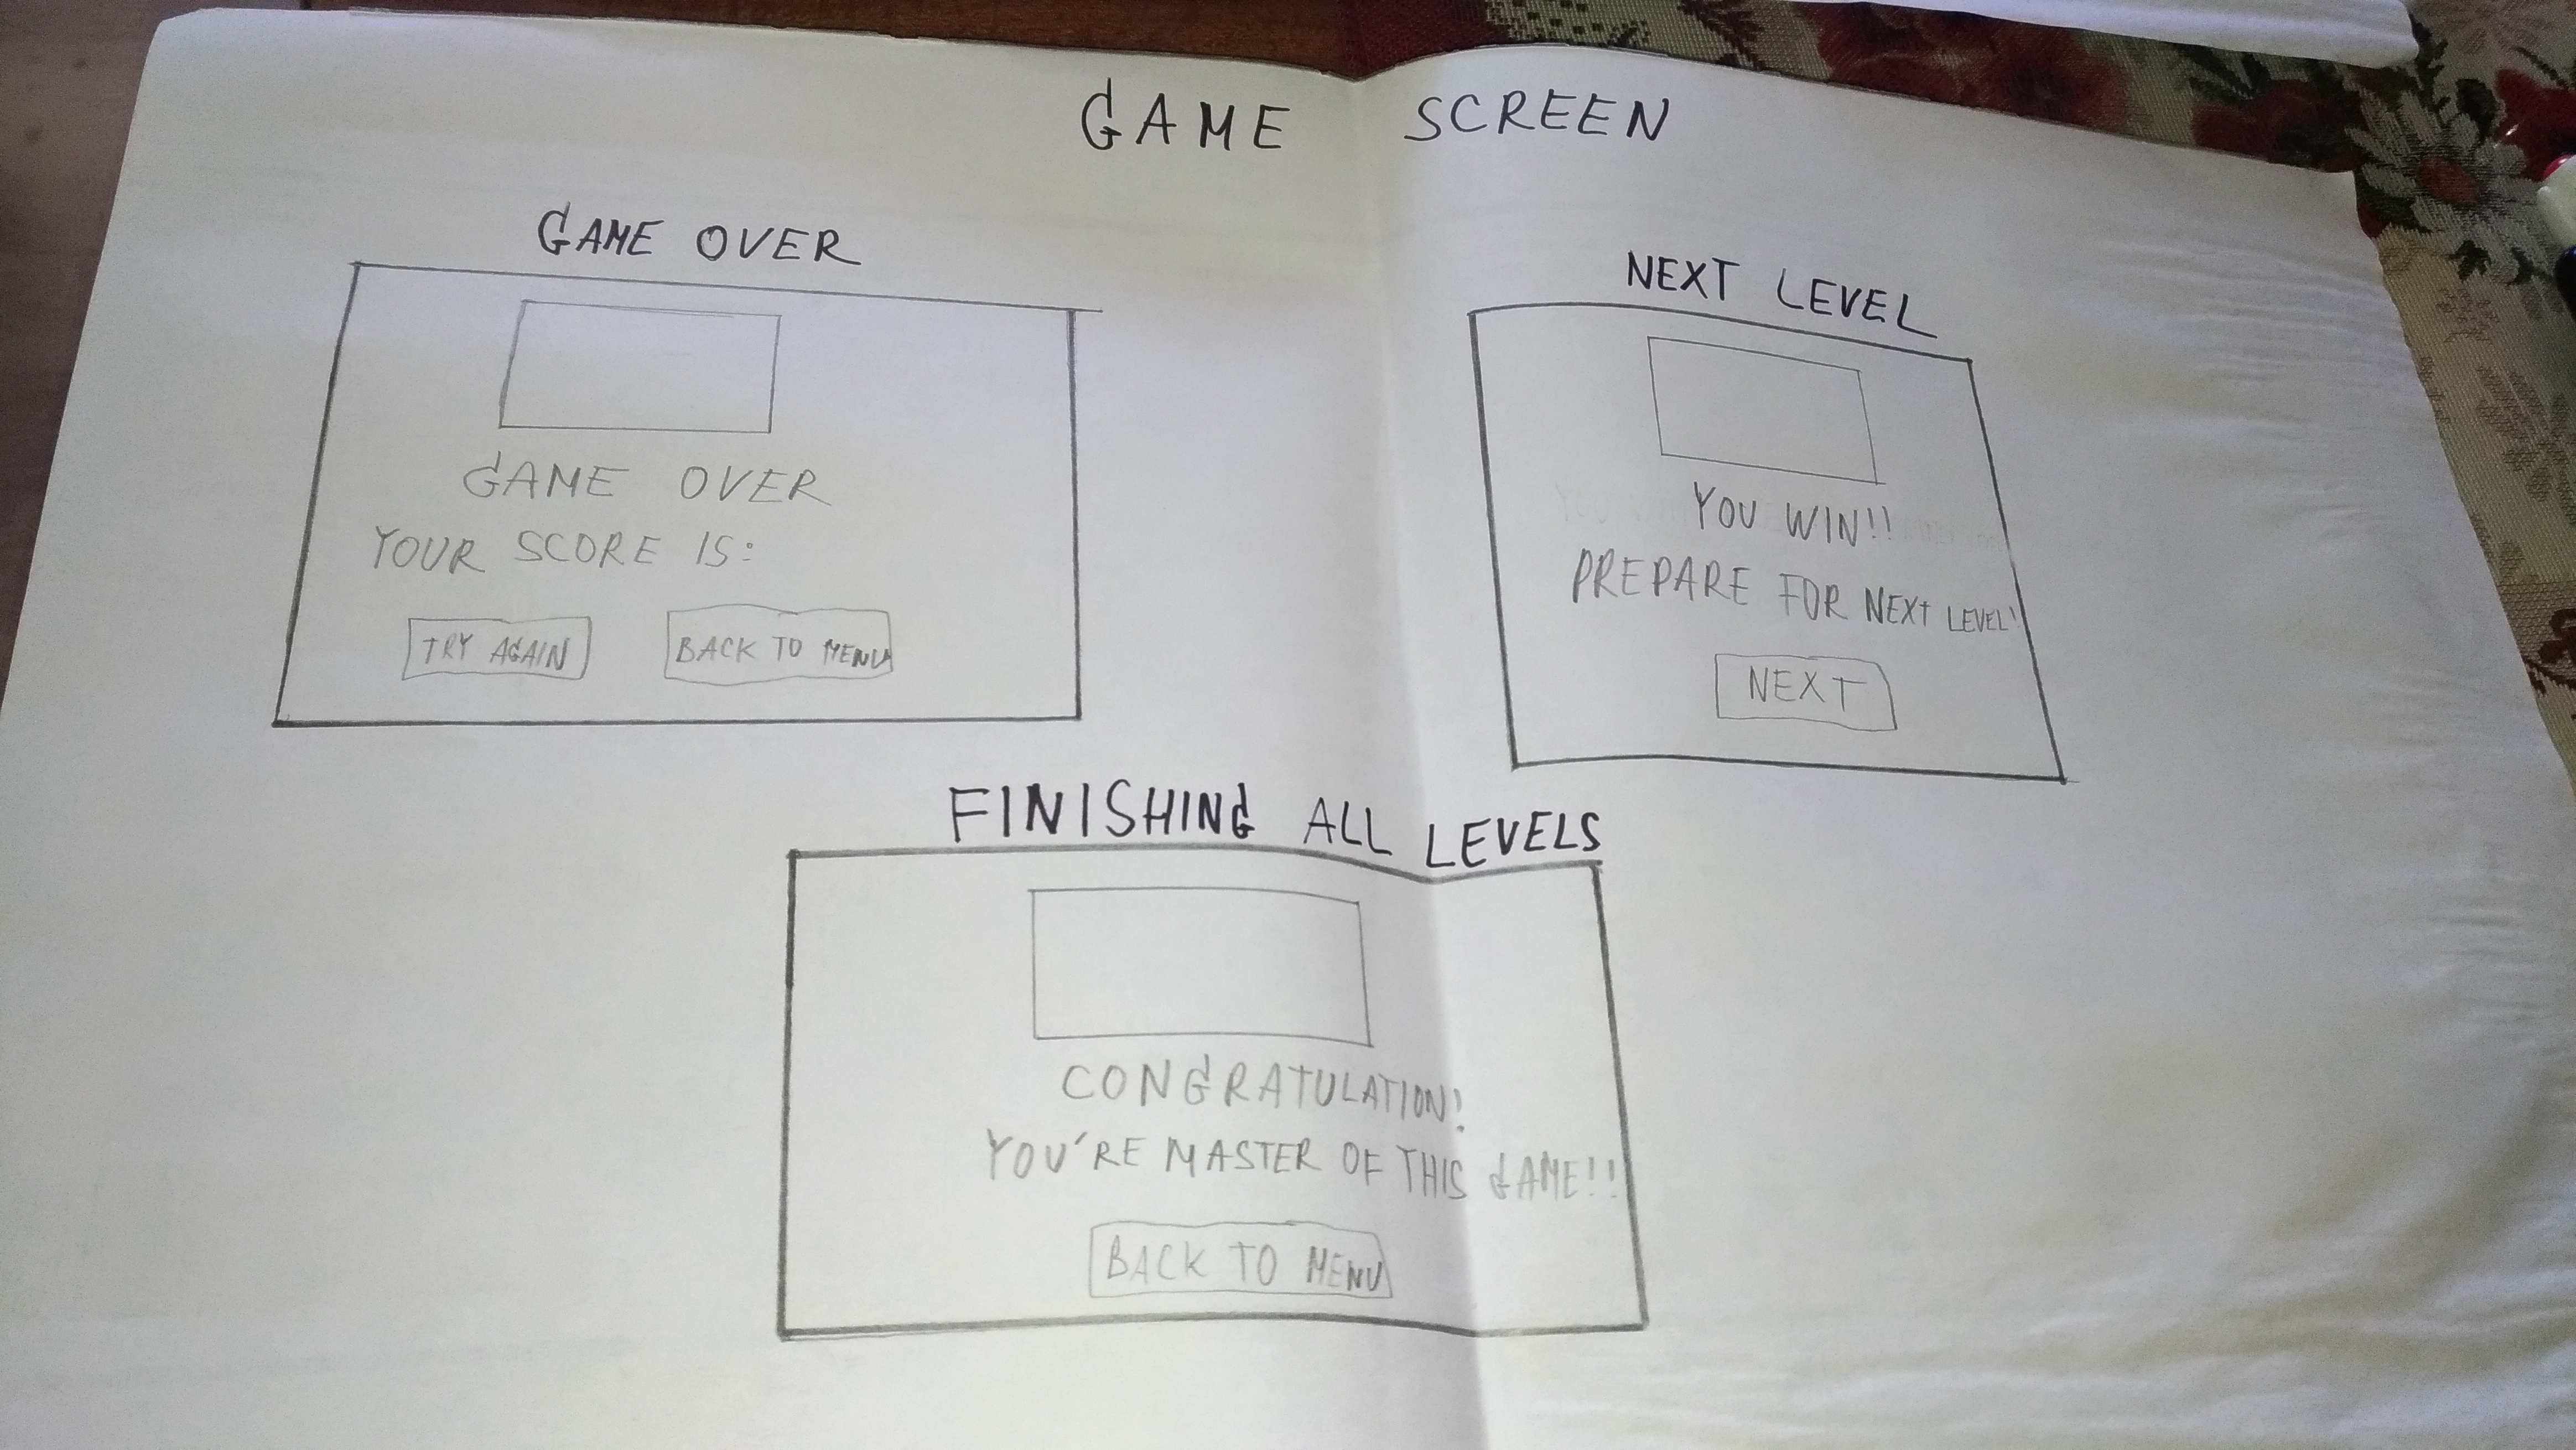 GAME SCREEN
GAME OVER
GAME OVER
YOUR SCORE IS:
TRY AGAIN
BACK TO MENU
NEXT LEVEL
YOU WIN!!
PREPARE FOR NEXT LEVEL!
NEXT
FINISHING ALL LEVELS
CONGRATULATION!
YOU'RE MASTER OF THIS GAME!!
BACK TO MENU